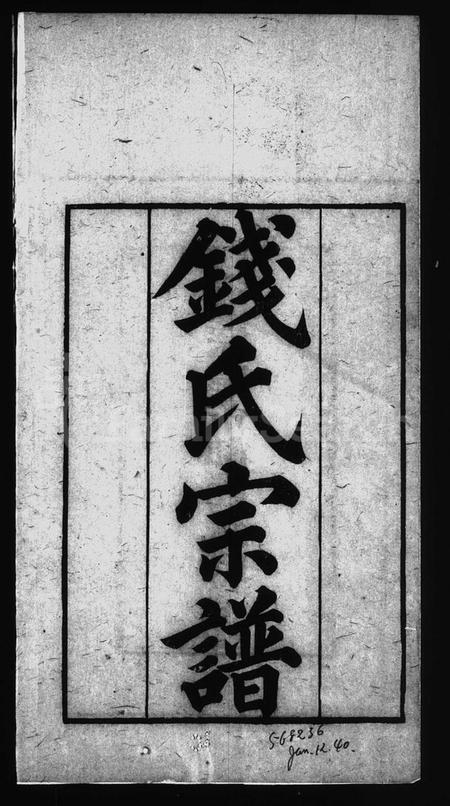 錢氏宗譜
568236
Jan. 12. 40.